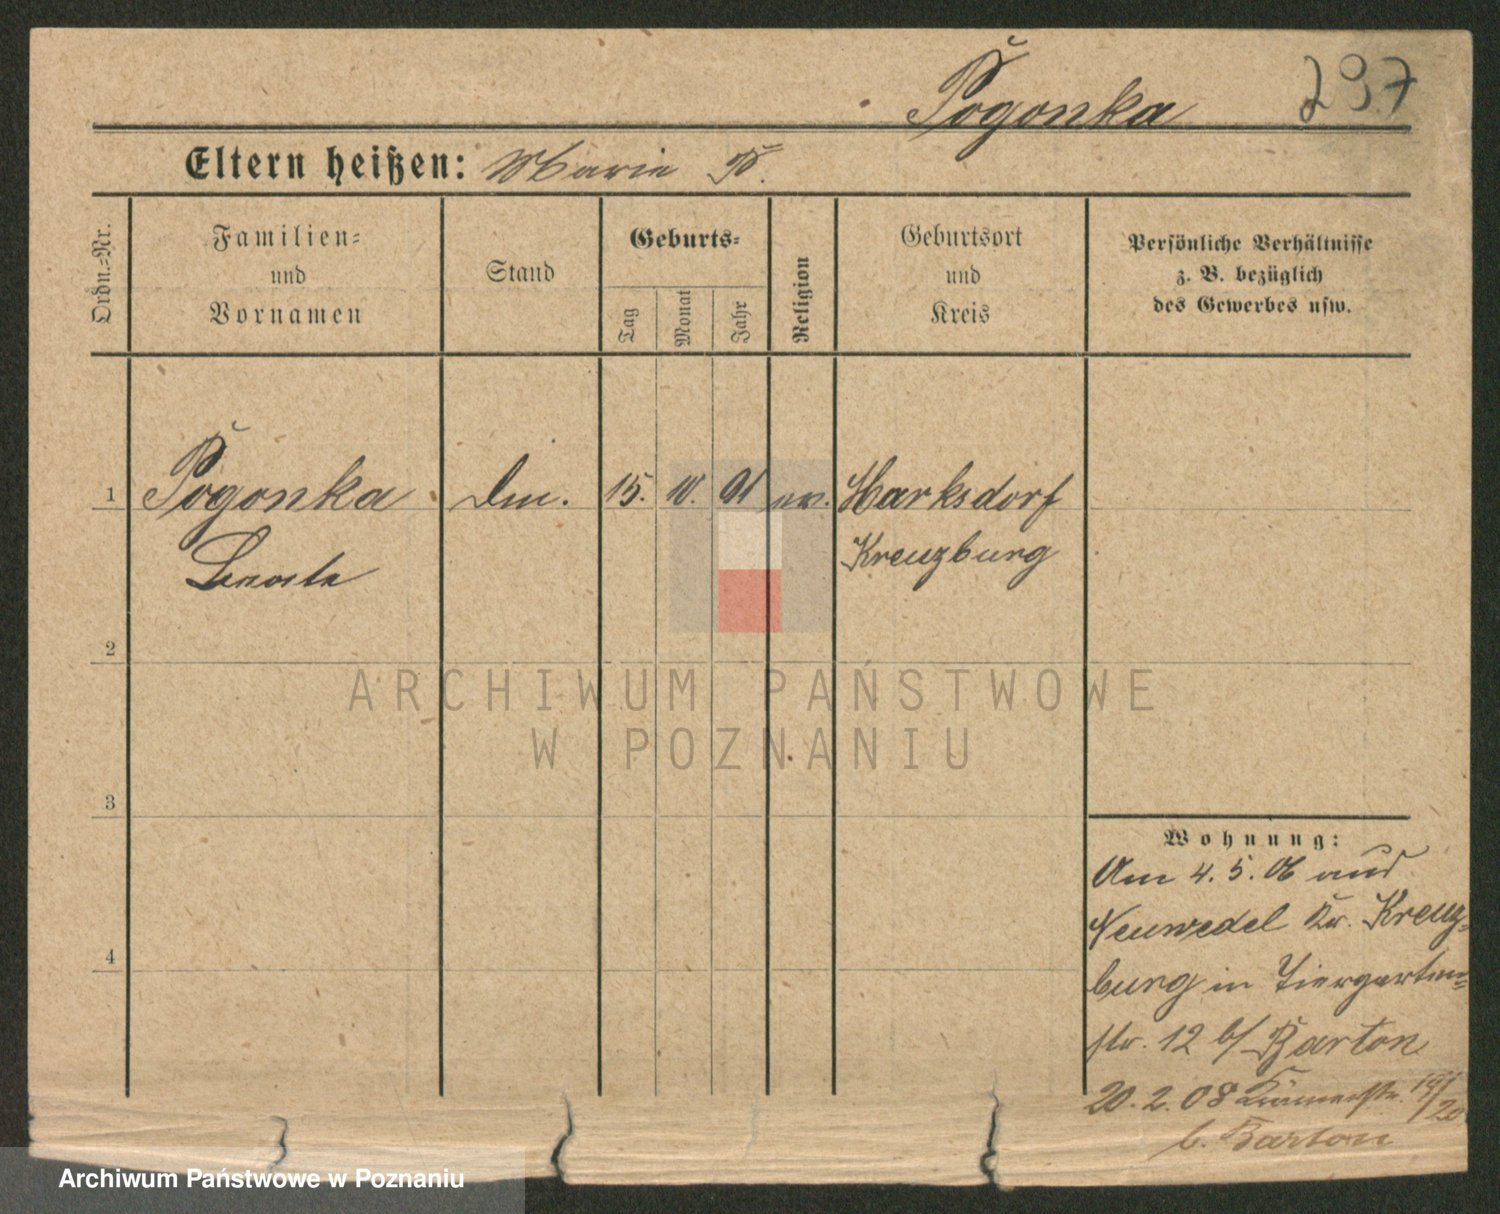 Pogonka 297
Eltern heißen: Marie P.
Ordn.-Nr.
Familien-
und
Vornamen
Stand
Geburts-
Tag
Monat
Jahr
Religion
Geburtsort
und
Kreis
Persönliche Verhältnisse
z. B. bezüglich
des Gewerbes usw.
1 Pogonka 15. 10. 91 ev. Marksdorf
Kreuzburg
2
3
4
Wohnung:
Am 4. 5. 06 aus
Neuwedel Kr. Kreuz-
burg in Tiergarten-
str. 12 b/ Barton
20. 2. 08 Krämerstr. 19/20
b. Barton
ARCHIWUM PAŃSTWOWE
W POZNANIU
Archiwum Państwowe w Poznaniu